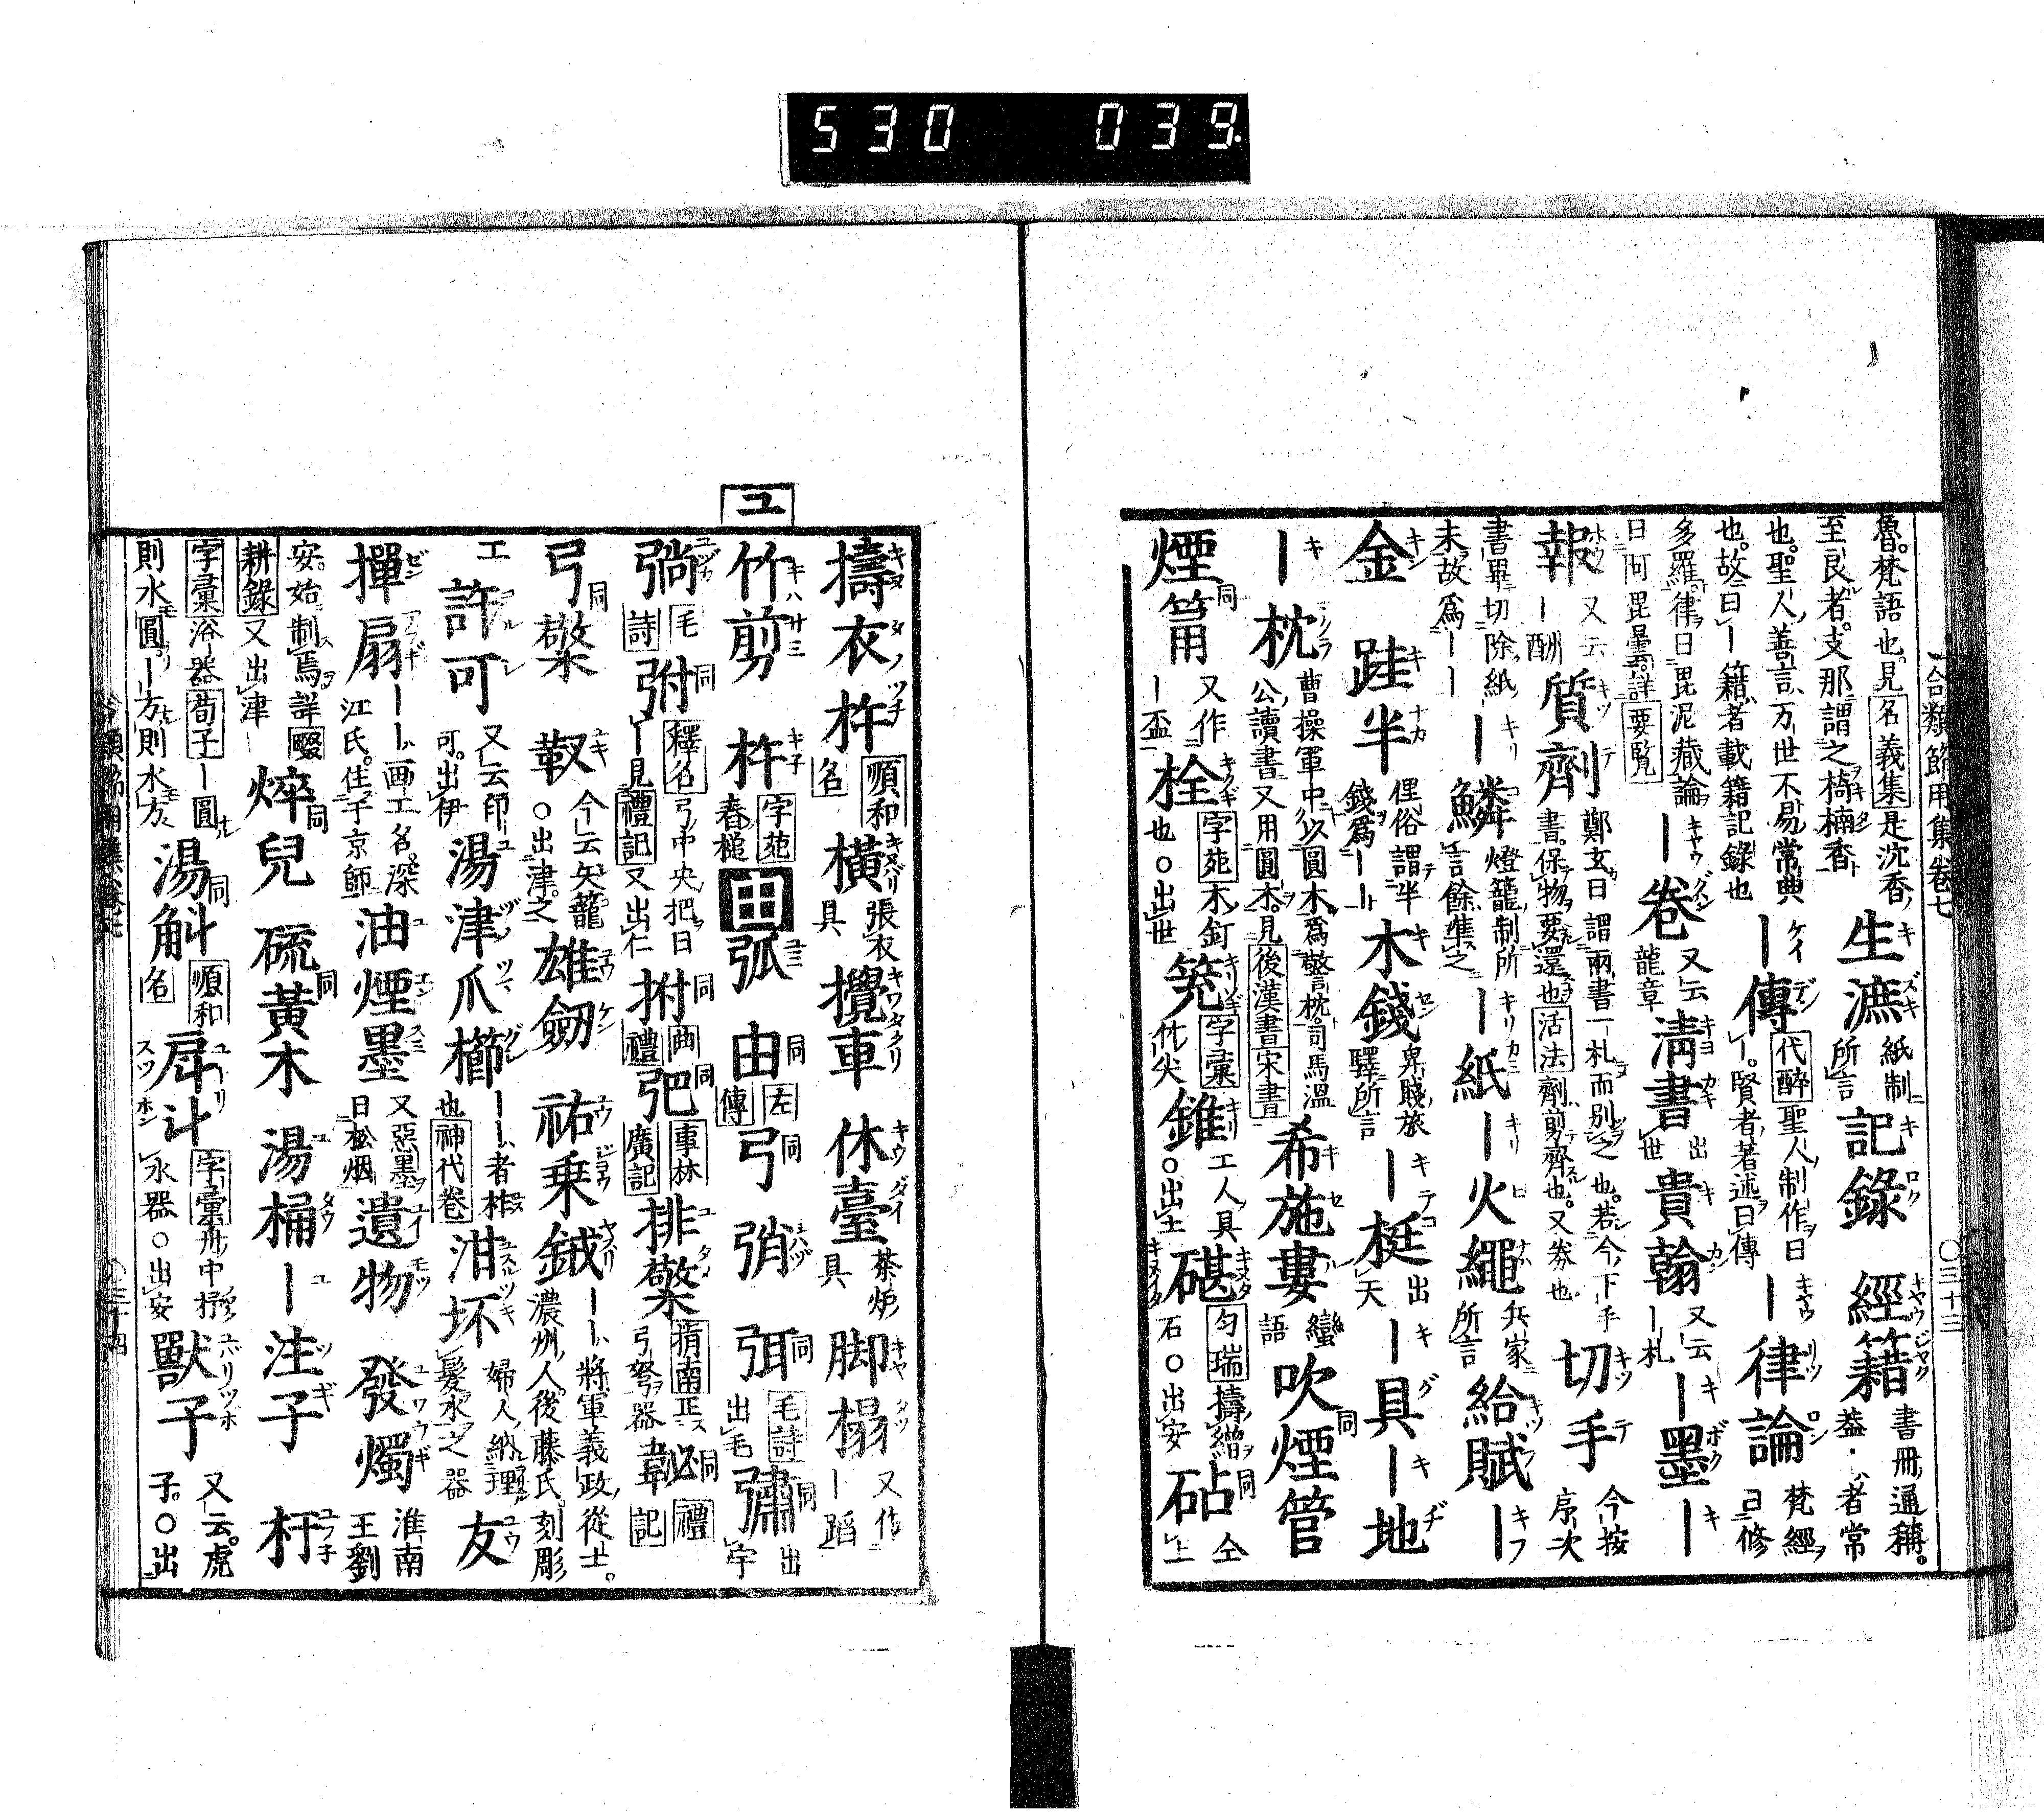 530 039
合類節用集卷七 〇三十三
魯梵語也見名義集是沈香
至良者支那謂之椅楠香 生漉 紙制所言 記錄 經籍 書冊通稱益者常
也聖人善言万世不易常典
也故曰ー籍者載籍記錄也 ー傳 代醉聖人制作曰ー賢者著述曰傳 ー律論 梵經曰修
多羅律曰毘泥藏論
曰阿毘曇詳要覽 ー卷 又云龍章 清書 出世 貴翰 又云ー札 ー墨 ー
報 又云ー酬 質劑 鄭玄曰謂兩書一札而別之也若今下手書保物要還也活法劑剪齊也又券也 切手 今按序次
書畢切除紙
未故爲ーー ー鱗 燈籠制所言餘準之 ー紙 ー火繩 兵家所言 給賦 ー
金 跬半 俚俗謂半錢爲ーー 木錢 卑賤旅驛所言 ー梃 出天 ー具 ー地
ー枕 曹操軍中以圓木爲警枕司馬溫公讀書又用圓木見後漢書宋書 希施婁 蠻語 吹煙管
煙筩 同 又作ー盃 栓 字苑木釘也〇出世 筅 字彙竹尖 錐 工人具〇出土 碪 匀瑞擣繒石〇出安 砧 同 仝上
ユ
擣衣杵 順和名 橫 張衣具 攪車 休臺 茶炉具 脚榻 又作ー蹈
竹剪 杵 字苑舂槌 器 弧 由 同 左傳 弓 同 弰 弭 同 毛詩出毛 彇 同 出宇
弰 毛詩 弣 同 釋名弓中央把曰ー見禮記又出仁 拊 同 曲禮 弝 同 事林廣記 排檠 指南正弓弩器 䪐 同 禮記
弓檠 同 靫 今云矢籠〇出津之 雄劔 祐乗鉞 ーー將軍義政從士濃州人後藤氏刻彫
工 許可 又云印可出伊 湯津爪櫛 ーー者柞也神代卷 泔坏 婦人納理髮水之器 友
揮扇 ーー画工名深江氏住于京師 油煙墨 又惡墨曰松烟 遺物 發燭 淮南王劉
安始制焉詳輟
耕錄又出津 焠兒 同 硫黃木 同 湯桶 ー注子 杅
字彙浴器荀子ー圓
則水圓ー方則水方 湯斛 同 順和名 戽斗 字彙舟中抒水器〇出安 獸子 又云虎子〇出